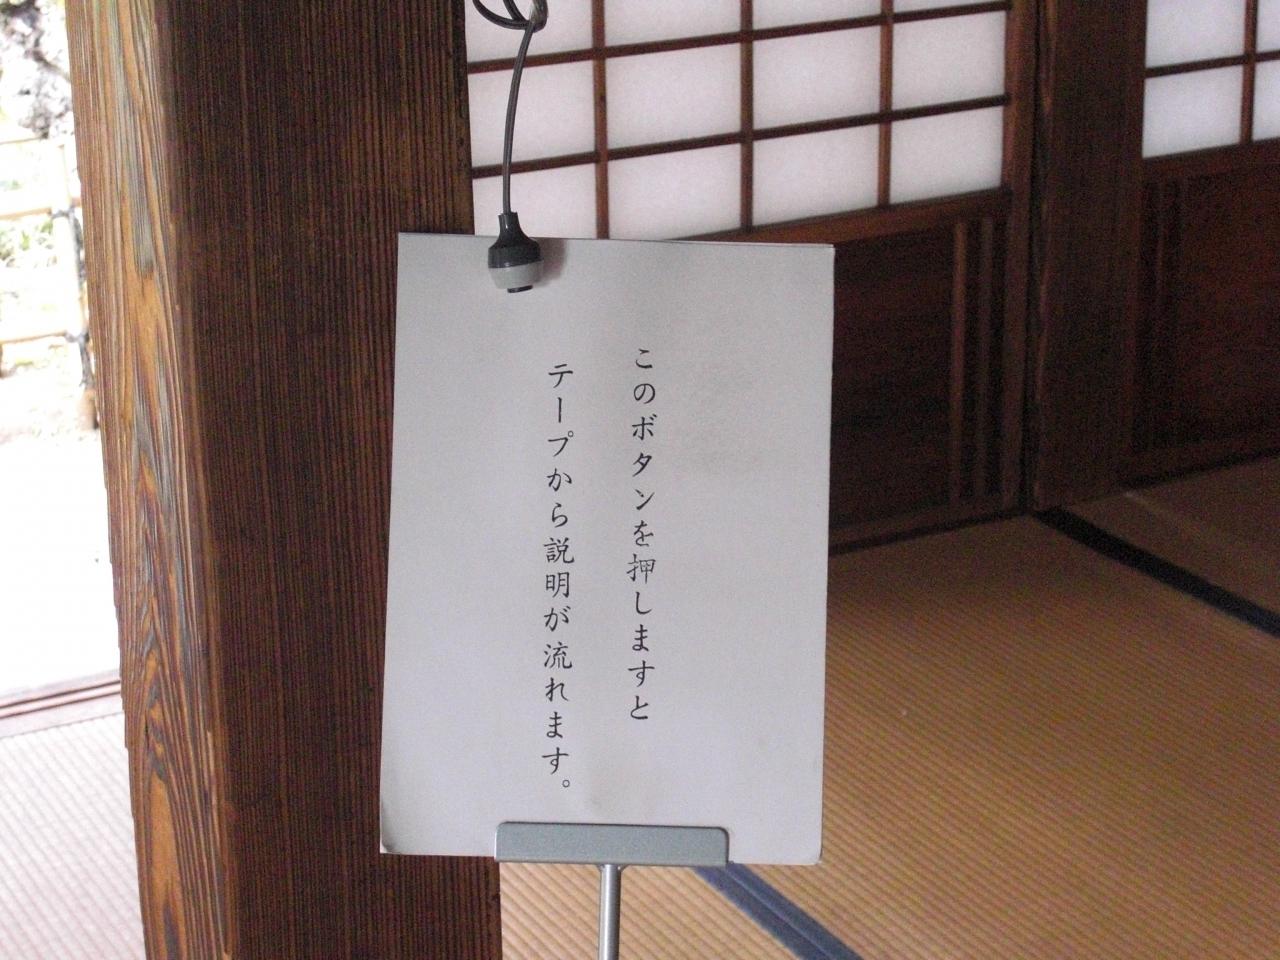 このボタンを押しますと
テープから説明が流れます。